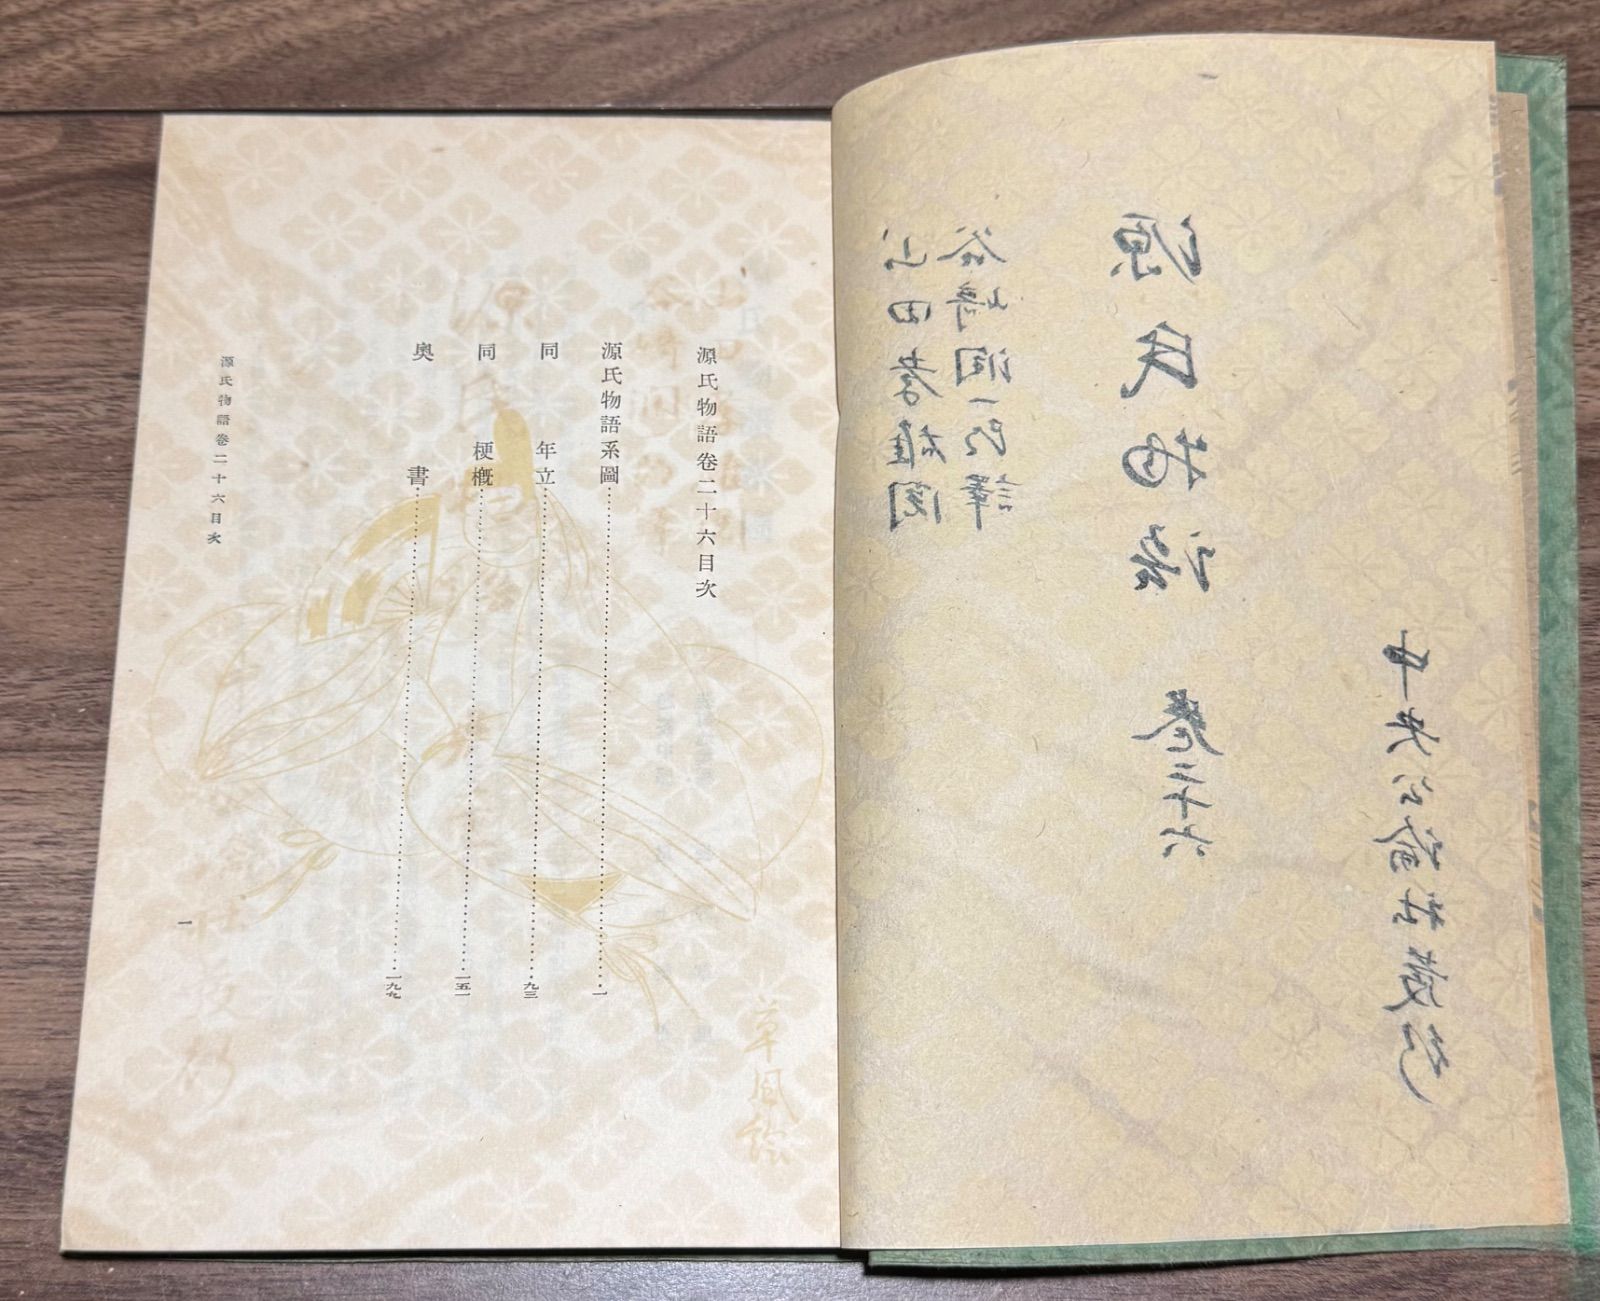 中央公論社蔵版
源氏物語 卷二十六
谷崎潤一郎譯
山田孝雄閲
源氏物語卷二十六目次
源氏物語系圖……一
同 年立……九三
同 梗概……一五一
奥書……一九九
源氏物語卷二十六目次
一
草風絵